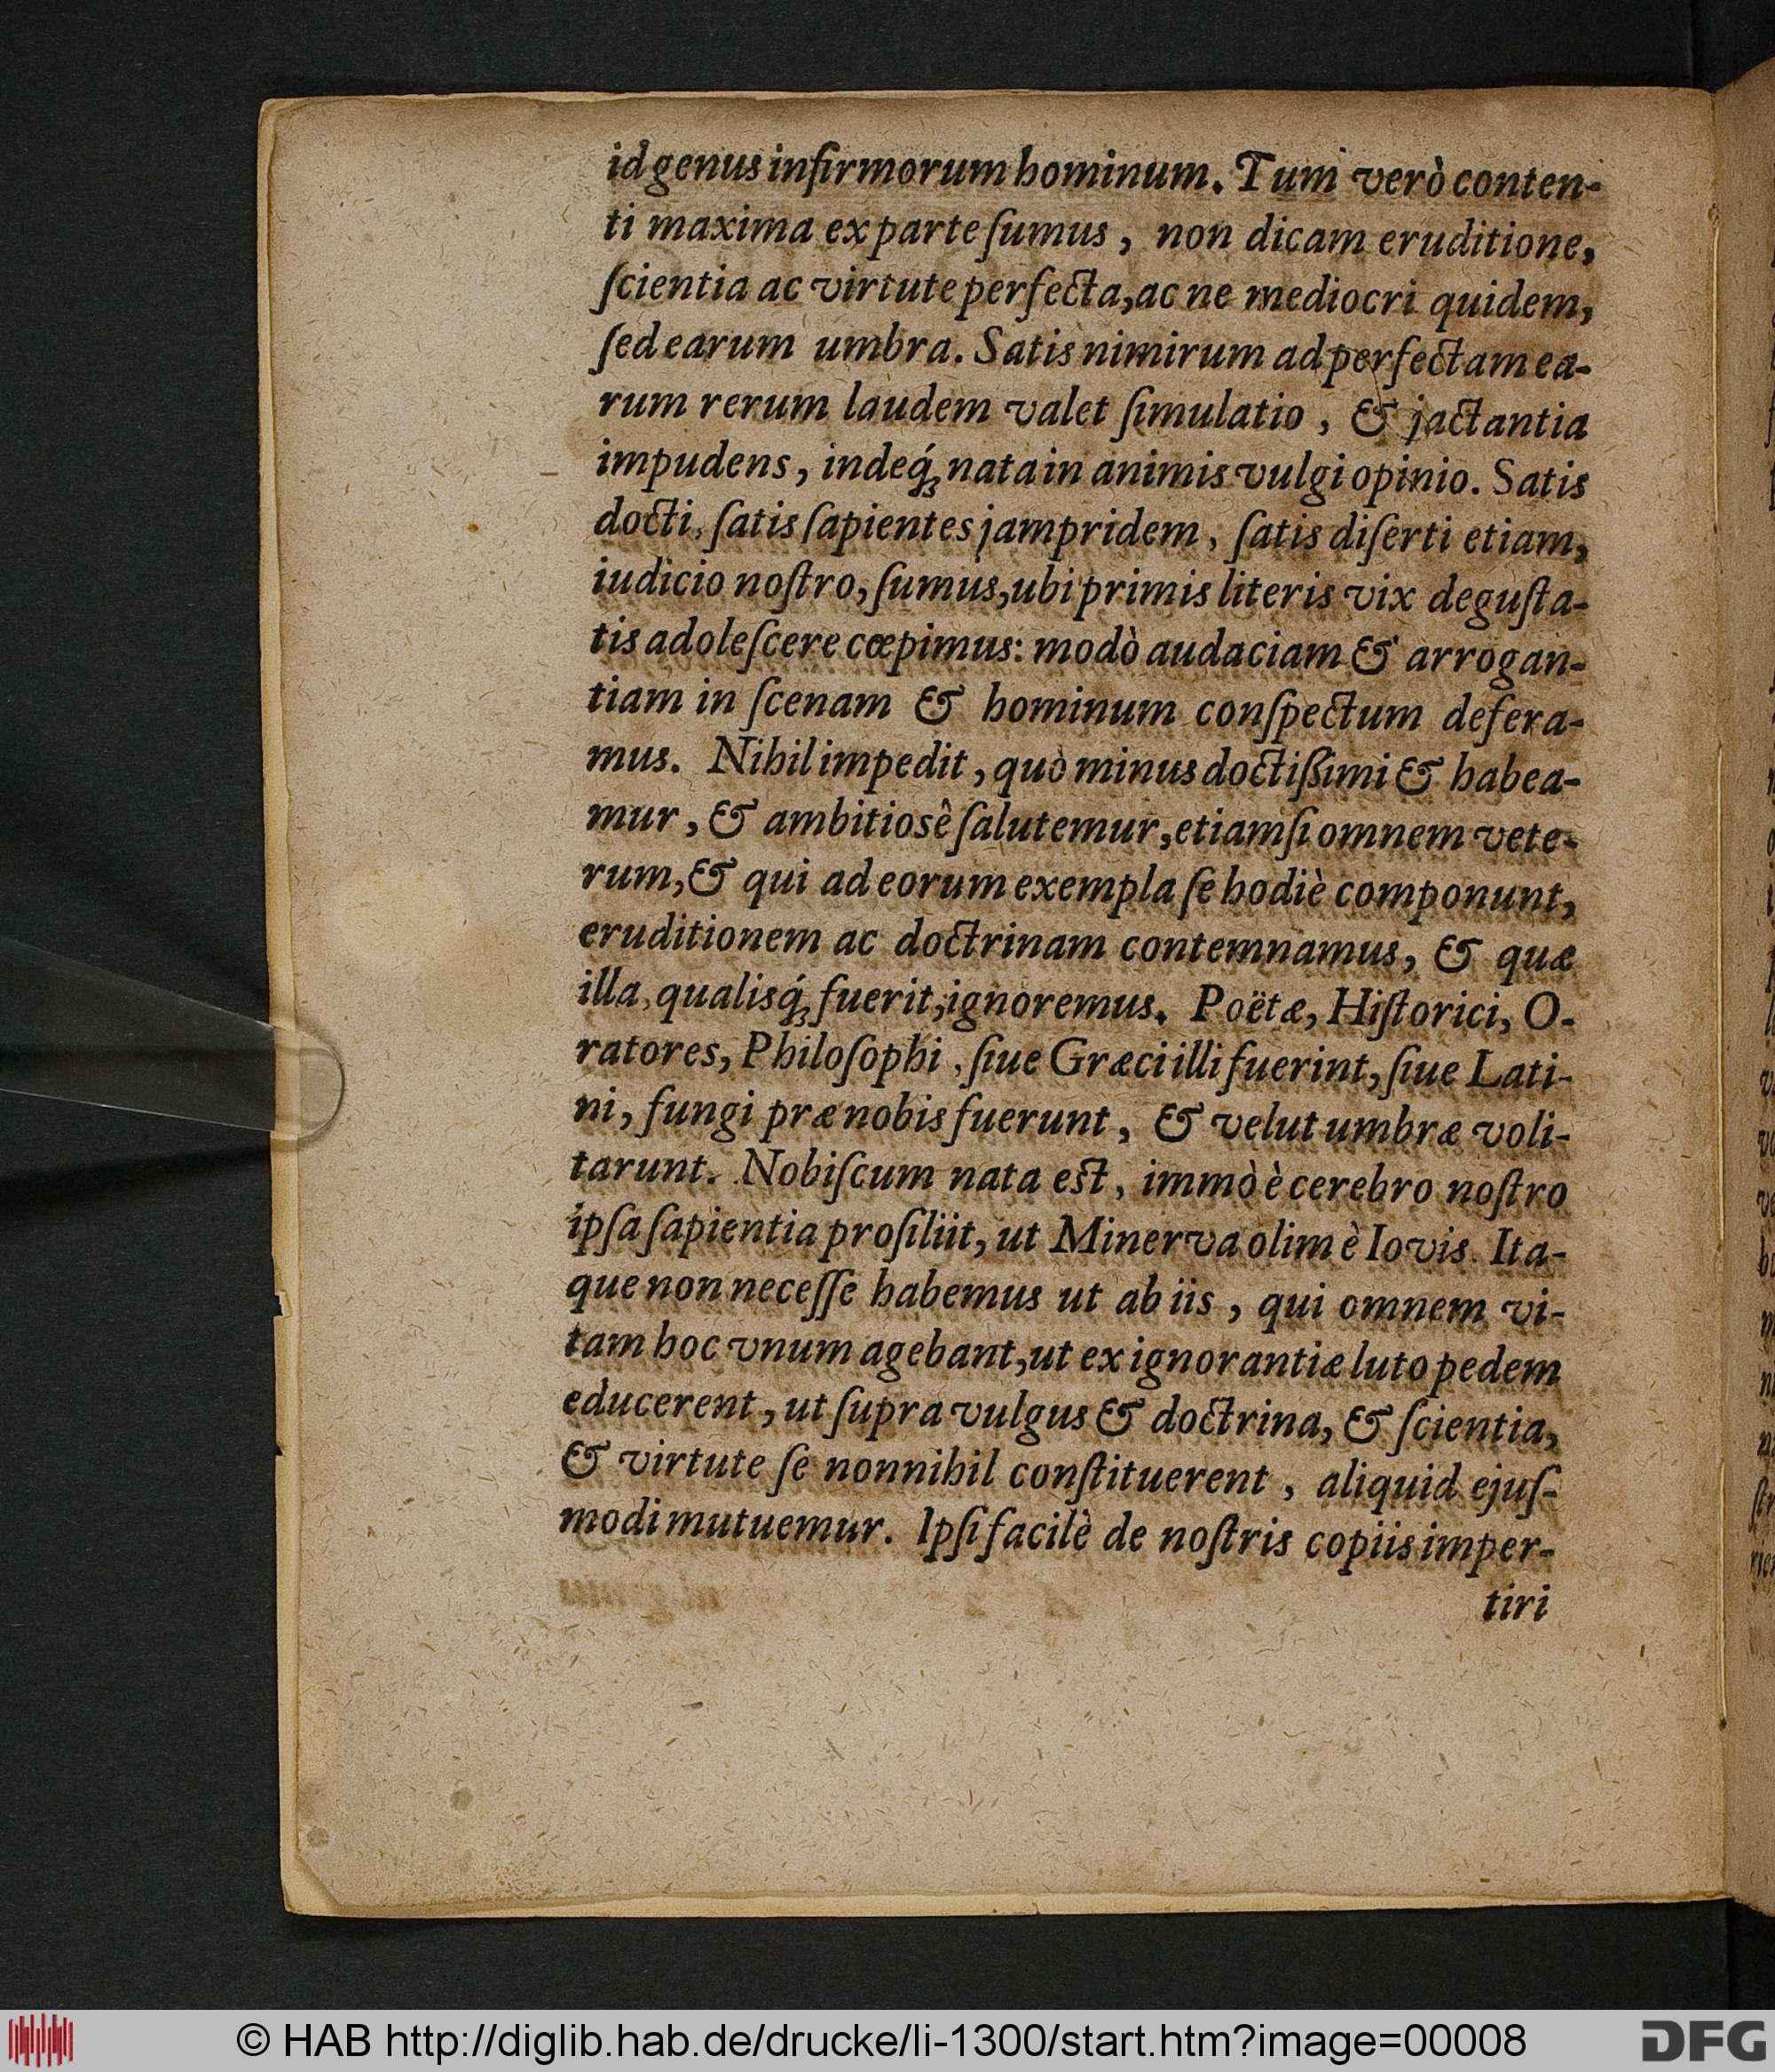 id genus infirmorum hominum. Tum verò conten-
ti maxima ex parte ſumus, non dicam eruditione,
ſcientia ac virtute perfecta, ac ne mediocri quidem,
ſed earum umbra. Satis nimirum ad perfectam ea-
rum rerum laudem valet ſimulatio, & jactantia
impudens, indeq́ꝫ nata in animis vulgi opinio. Satis
docti, ſatis ſapientes jampridem, ſatis diſerti etiam,
iudicio noſtro, ſumus, ubi primis literis vix deguſta-
tis adoleſcere cœpimus: modò audaciam & arrogan-
tiam in ſcenam & hominum conſpectum defera-
mus. Nihil impedit, quò minus doctißimi & habea-
mur, & ambitiosê ſalutemur, etiamſi omnem vete-
rum, & qui ad eorum exempla ſe hodiè componunt,
eruditionem ac doctrinam contemnamus, & quæ
illa, qualisq́ꝫ fuerit, ignoremus. Poëtæ, Hiſtorici, O-
ratores, Philoſophi, ſiue Græci illi fuerint, ſiue Lati-
ni, fungi præ nobis fuerunt, & velut umbræ voli-
tarunt. Nobiſcum nata est, immò è cerebro noſtro
ipſa ſapientia proſiliit, ut Minerva olim è Iovis. Ita-
que non neceſſe habemus ut ab iis, qui omnem vi-
tam hoc vnum agebant, ut ex ignorantiæ luto pedem
educerent, ut ſupra vulgus & doctrina, & ſcientia,
& virtute ſe nonnihil conſtituerent, aliquid ejuſ-
modi mutuemur. Ipſi facilè de noſtris copiis imper-
tiri
© HAB http://diglib.hab.de/drucke/li-1300/start.htm?image=00008
DFG